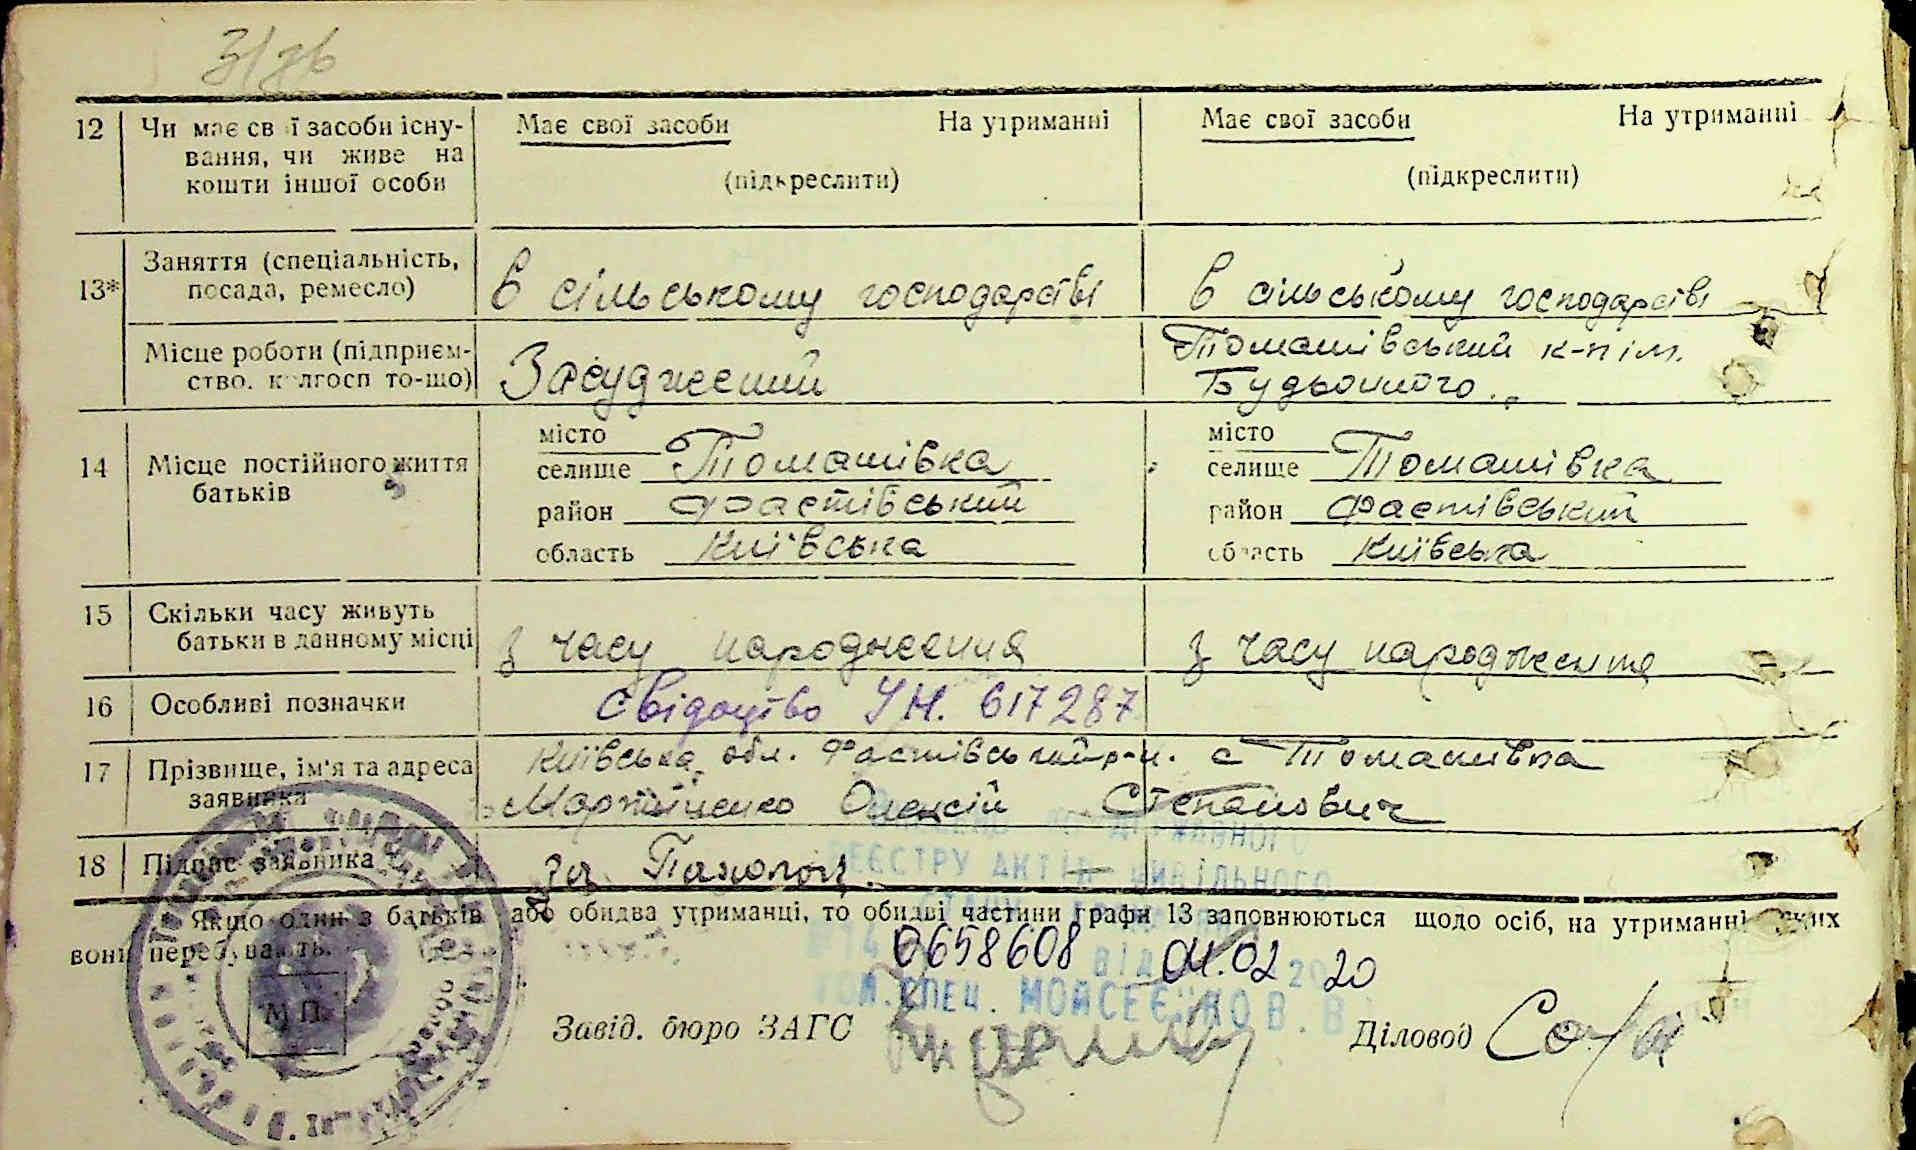 12 Чи має свої засоби існу- Має свої засоби На утриманні Має свої засоби На утриманні
вання, чи живе на
кошти іншої особи (підкреслити) (підкреслити)
13* Заняття (спеціальність,
посада, ремесло) в сільському господарстві в сільському господарстві
Місце роботи (підприєм- Засуджений Томашівський к-п ім.
ство, колгосп то-що) Будьонного.
14 Місце постійного життя
батьків
місто місто
селище Томашівка селище Томашівка
район Фастівський район Фастівський
область Київська область Київська
15 Скільки часу живуть
батьки в данному місці з часу народження з часу народження
16 Особливі позначки Свідоцтво УН. 617287
17 Прізвище, ім'я та адреса Київська обл. Фастівський р-н. с Томашівка
заявника Мартиненко Олексій Степанович
18 Підпис заявника
Якщо один з батьків або обидва утриманці, то обидві частини графи 13 заповнюються щодо осіб, на утриманні яких
вони перебувають.
ДЕРЖАВНОГО
РЕЄСТРУ АКТІВ ЦИВІЛЬНОГО
0658608 04.02 20
від
СПЕЦ. МОЙСЕЄНКО В. В
М.П.
Завід. бюро ЗАГС Діловод